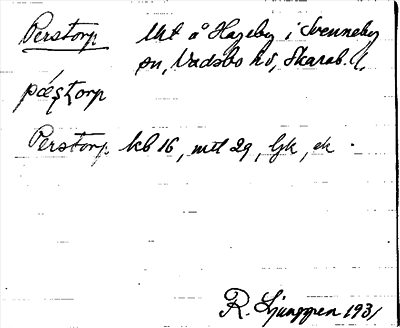 Perstorp lht å Hageby i Svenneby
sn, Vadsbo hd, Skarab. l,
pæṣṭorp
Perstorp kb 16, mtl 29, ljk, ek.
R. Ljunggren 1931